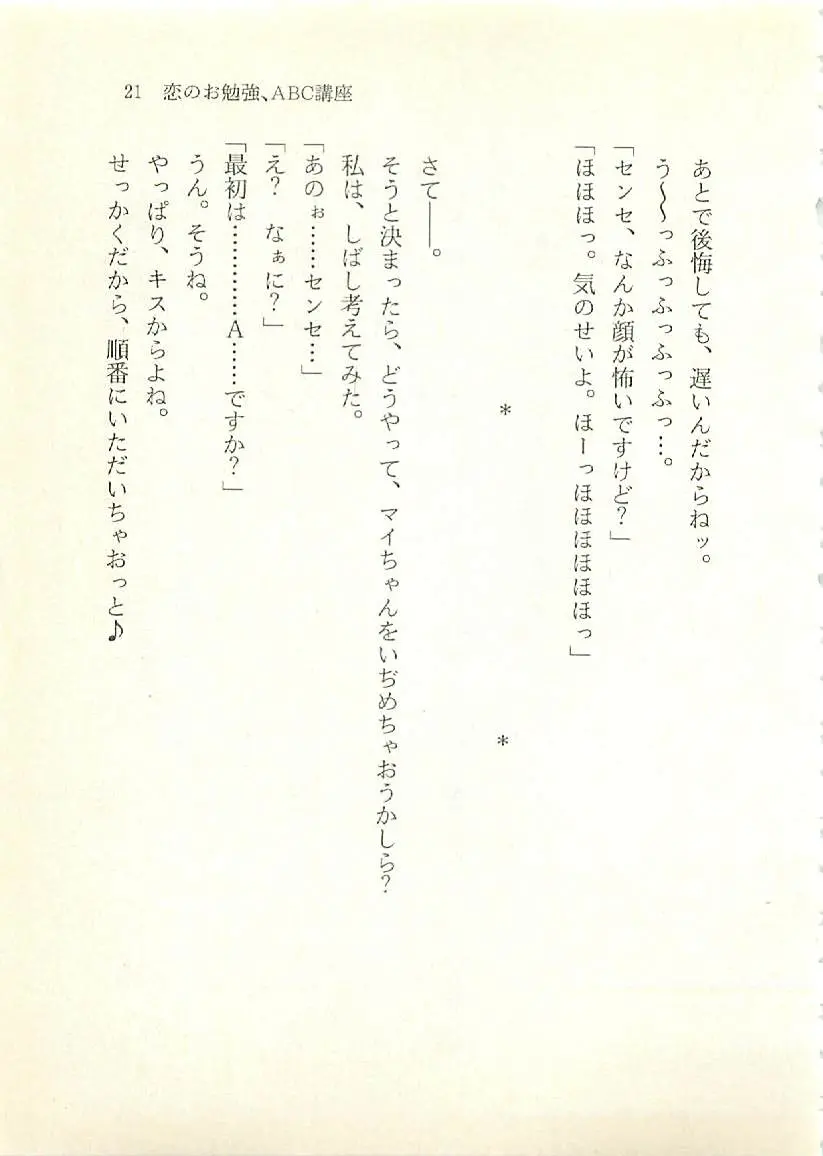 21 恋のお勉強、ABC講座
あとで後悔しても、遅いんだからねッ。
う〜〜っふっふっふっふっ…。
「センセ、なんか顔が怖いですけど？」
「ほほほっ。気のせいよ。ほーっほほほほほほっ」
＊ ＊
さて――。
そうと決まったら、どうやって、マイちゃんをいぢめちゃおうかしら？
私は、しばし考えてみた。
「あのぉ……センセ…」
「え？ なぁに？」
「最初は…………A……ですか？」
うん。そうね。
やっぱり、キスからよね。
せっかくだから、順番にいただいちゃおっと♪